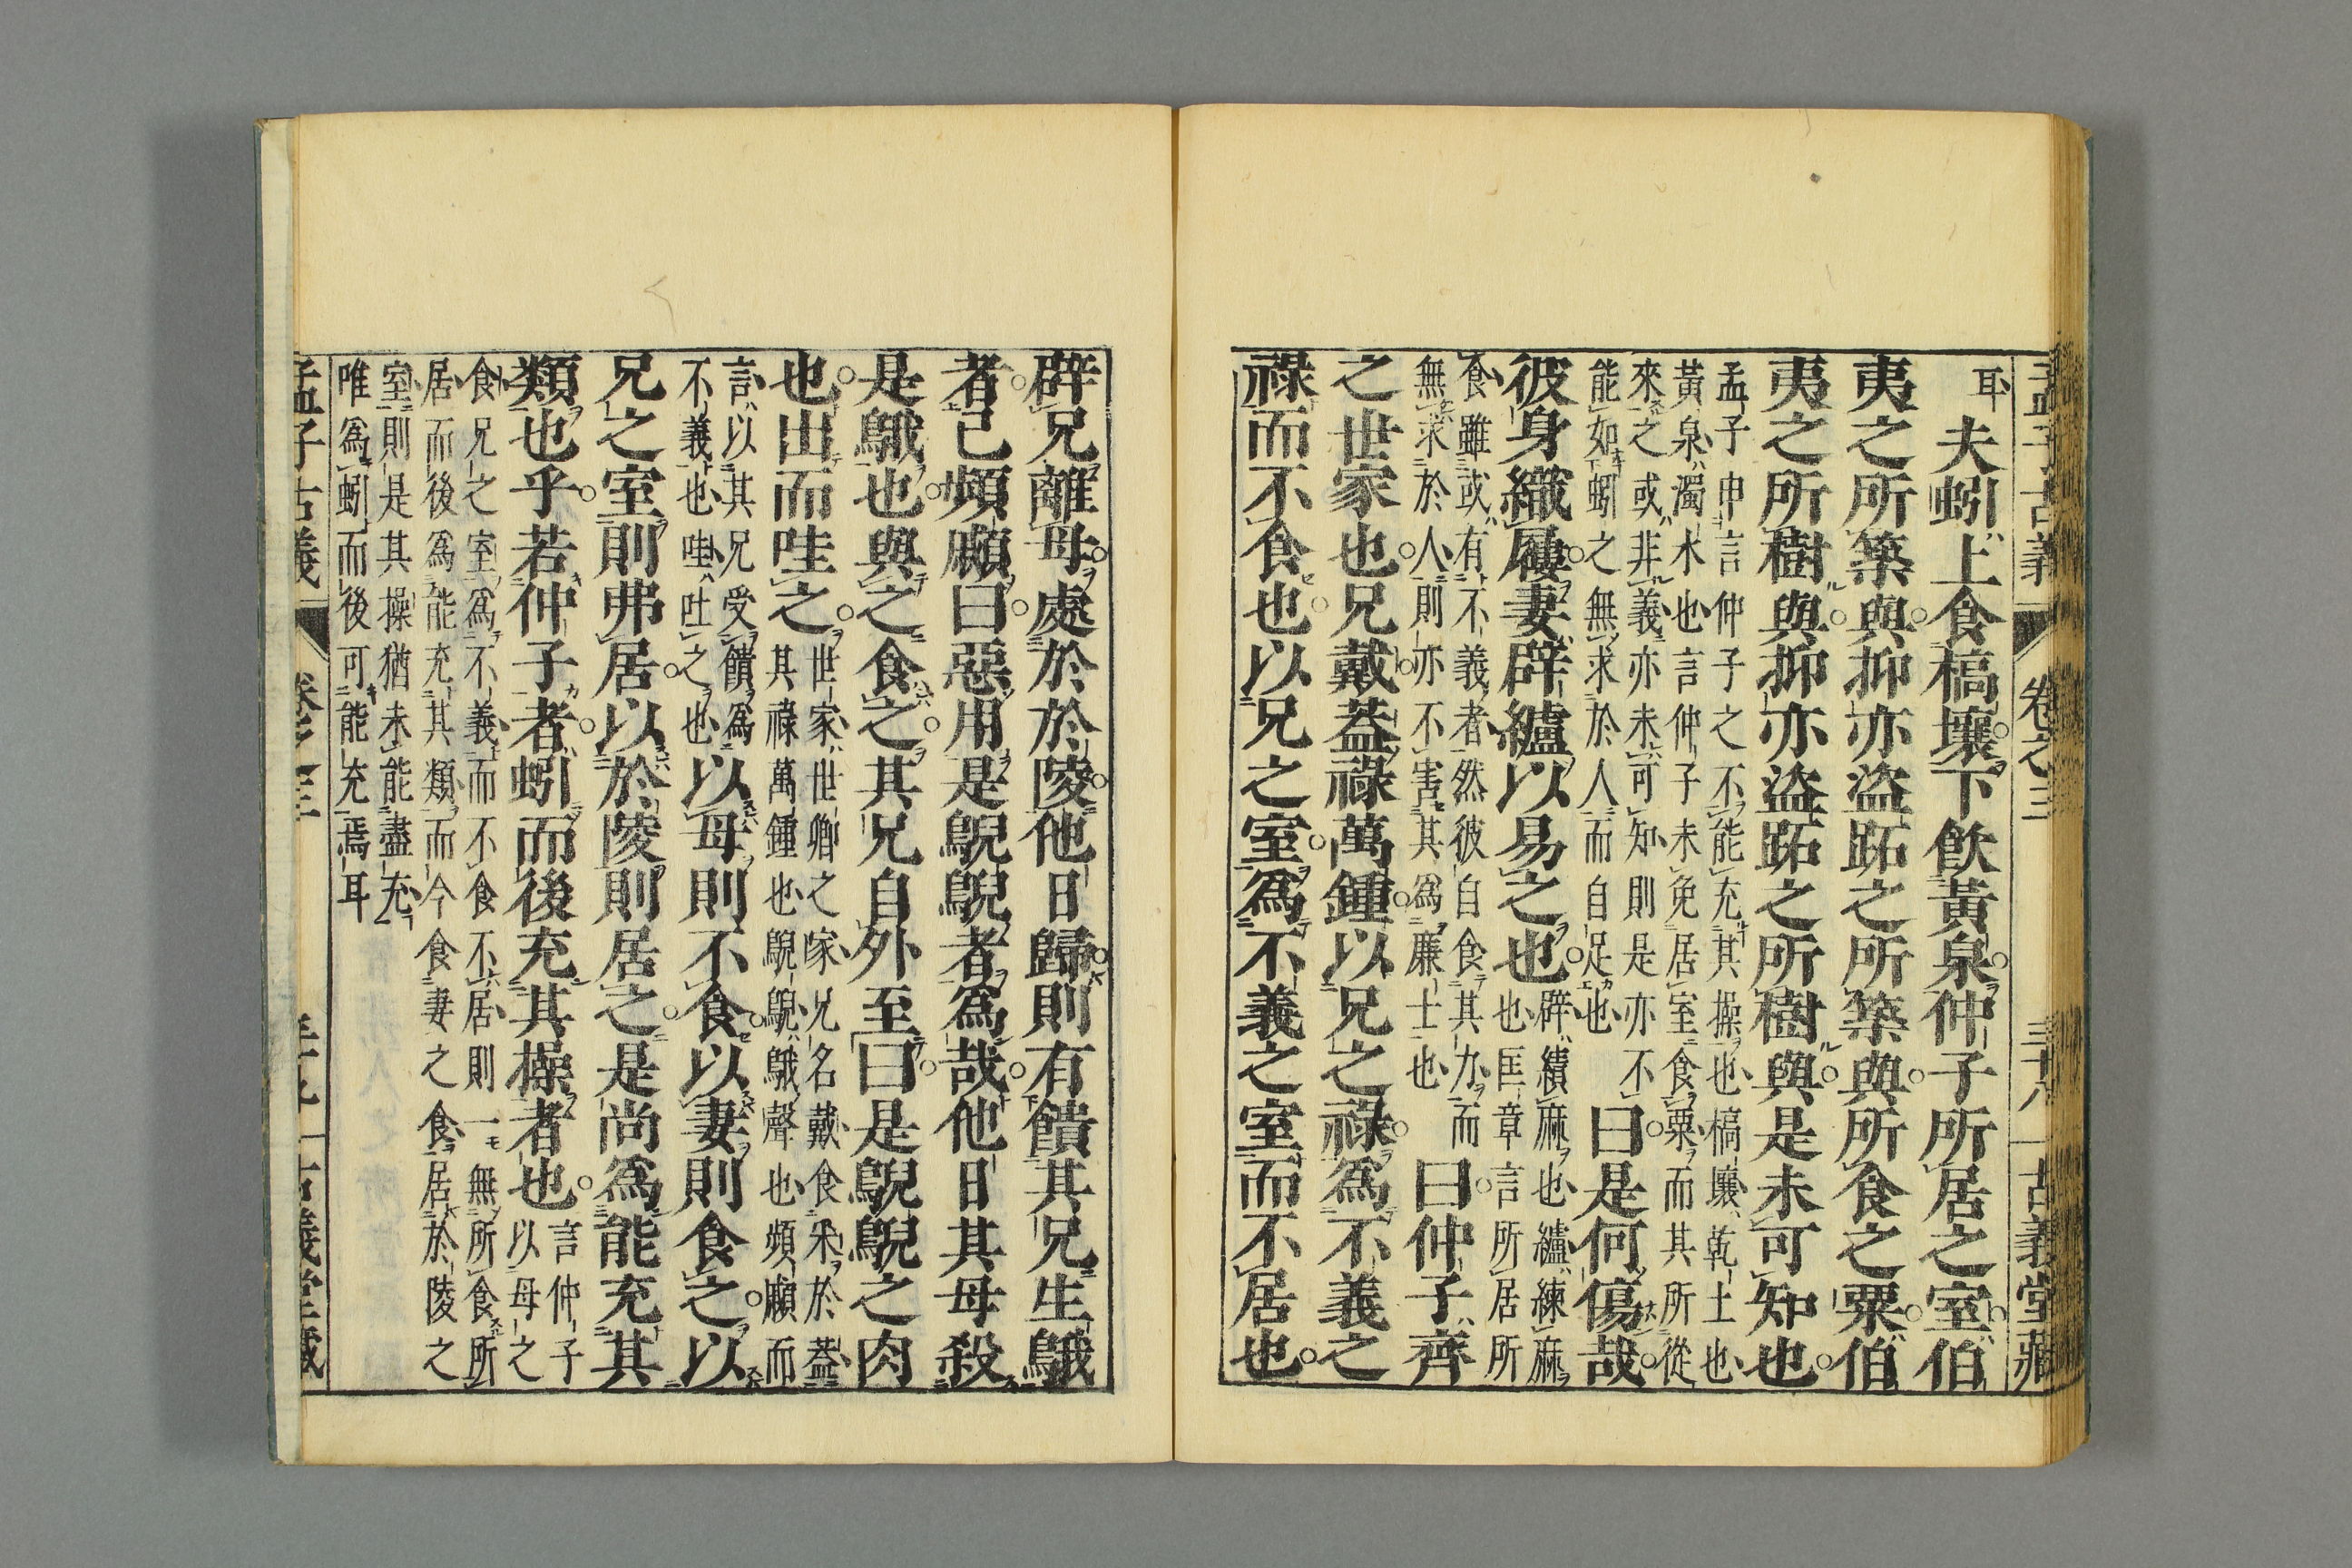 孟子古義 卷之三 三十八 古義堂藏
耳
夫蚓上食槁壤下飮黃泉仲子所居之室伯
夷之所築與抑亦盜跖之所築與所食之粟伯
夷之所樹與抑亦盜跖之所樹與是未可知也
孟子申言仲子之不能充其操也槁壤乾土也
黃泉濁水也言仲子未免居室食粟而其所從
來之或非義亦未可知則是亦不
能如蚓之無求於人而自足也
曰是何傷哉
彼身織屨妻辟纑以易之也
辟績麻也纑練麻
也匡章言所居所
食雖或有不義者然彼自食其力而
無求於人則亦不害其爲廉士也
曰仲子齊
之世家也兄戴蓋祿萬鍾以兄之祿爲不義之
祿而不食也以兄之室爲不義之室而不居也
辟兄離母處於於陵他日歸則有饋其兄生鵝
者己頻顣曰惡用是鶃鶃者爲哉他日其母殺
是鵝也與之食之其兄自外至曰是鶃鶃之肉
也出而哇之
世家世卿之家兄名戴食采於蓋
其祿萬鍾也鶃鶃鵝聲也頻顣而
言以其兄受饋爲
不義也哇吐之也
以母則不食以妻則食之以
兄之室則弗居以於陵則居之是尚爲能充其
類也乎若仲子者蚓而後充其操者也
言仲子
以母之
食兄之室爲不義而不食不居則一無所食所
居而後爲能充其類而今食妻之食居於陵之
室則是其操猶未能盡充
唯爲蚓而後可能充焉耳
孟子古義 卷之三 古義堂藏